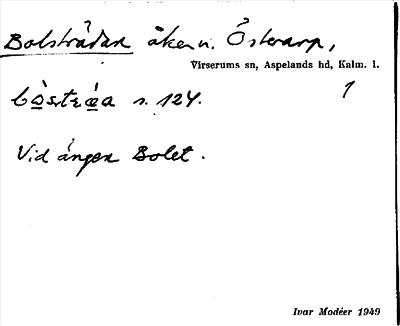 Bolsträdan åker n. Österarp,
Virserums sn, Aspelands hd, Kalm. l.
s. 124. 1
Vid ängen Bolet.
Ivar Modéer 1949